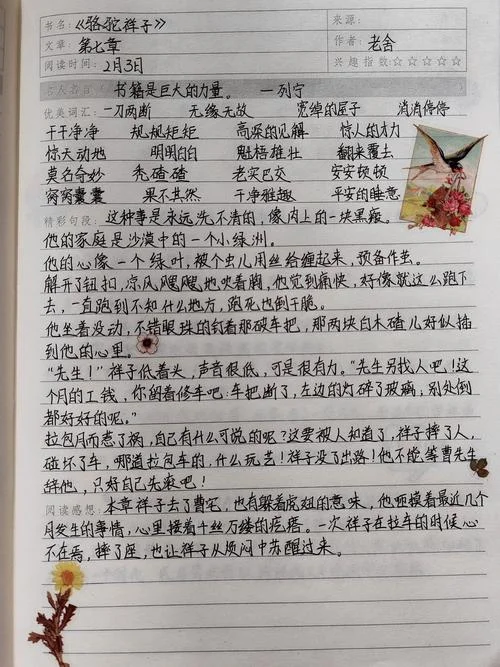 书名：《骆驼祥子》 来源：
文章：第七章 作者：老舍
阅读时间：2月3日 兴趣指数：☆☆☆☆☆
名人名言：书籍是巨大的力量。 —列宁
优美词汇：一刀两断 无缘无故 宽绰的屋子 消消停停
干干净净 规规矩矩 高深的见解 惊人的才力
惊天动地 明明白白 魁梧雄壮 翻来覆去
莫名奇妙 秃碴碴 老实巴交 安安顿顿
窝窝囊囊 果不其然 干净雅趣 平安的睡意
精彩句段：这种事是永远洗不清的，像肉上的一块黑瘢。
他的家庭是沙漠中的一个小绿洲。
他的心像一个绿叶，被个虫儿用丝给缠起来，预备作茧。
解开了钮扣，凉风飕飕地吹着胸，他觉到痛快，好像就这么跑下
去，一直跑到不知什么地方，跑死也倒干脆。
他坐着没动，不错眼珠的钉着那破车把，那两块白木碴儿好似插
到他的心里。
“先生！”祥子低着头，声音很低，可是很有力。“先生另找人吧！这
个月的工钱，你留着修车吧：车把断了，左边的灯碎了玻璃；别处倒
都好好的呢。”
拉包月而惹了祸，自己有什么可说的呢？这要被人知道了，祥子摔了人，
碰坏了车，哪道拉包车的，什么玩艺！祥子没了出路！他不能等曹先生
辞他，只好自己先滚吧！
阅读感想：本章祥子去了曹宅，也有躲着虎妞的意味，他咂摸着最近几个
月发生的事情，心里接着千丝万缕的疙瘩。一次祥子在拉车的时候心
不在焉，摔了座，也让祥子从烦闷中苏醒过来。